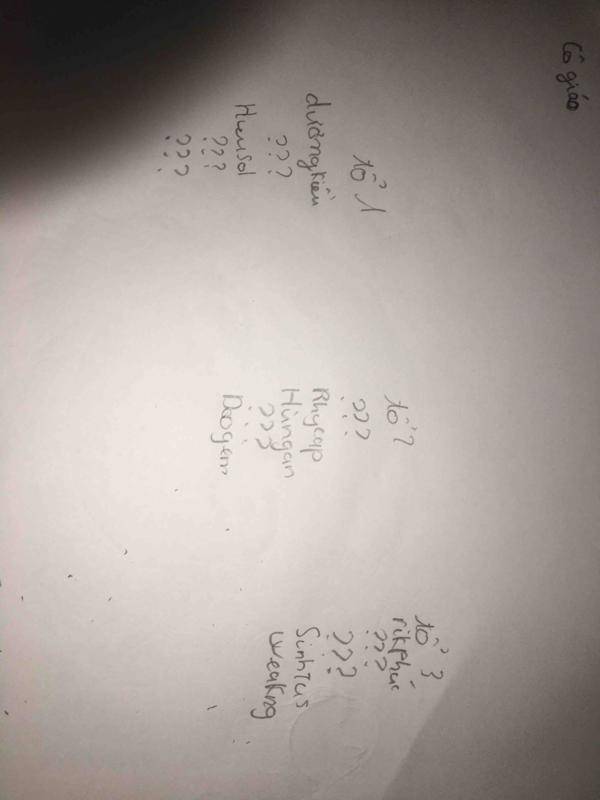 Cô giáo
tổ 1
dường kiều
???
Huusol
???
???
tổ 2
???
Rhycap
Hùngan
???
Doogem
tổ 3
rikphúc
???
???
Sinhlus
Wreakng